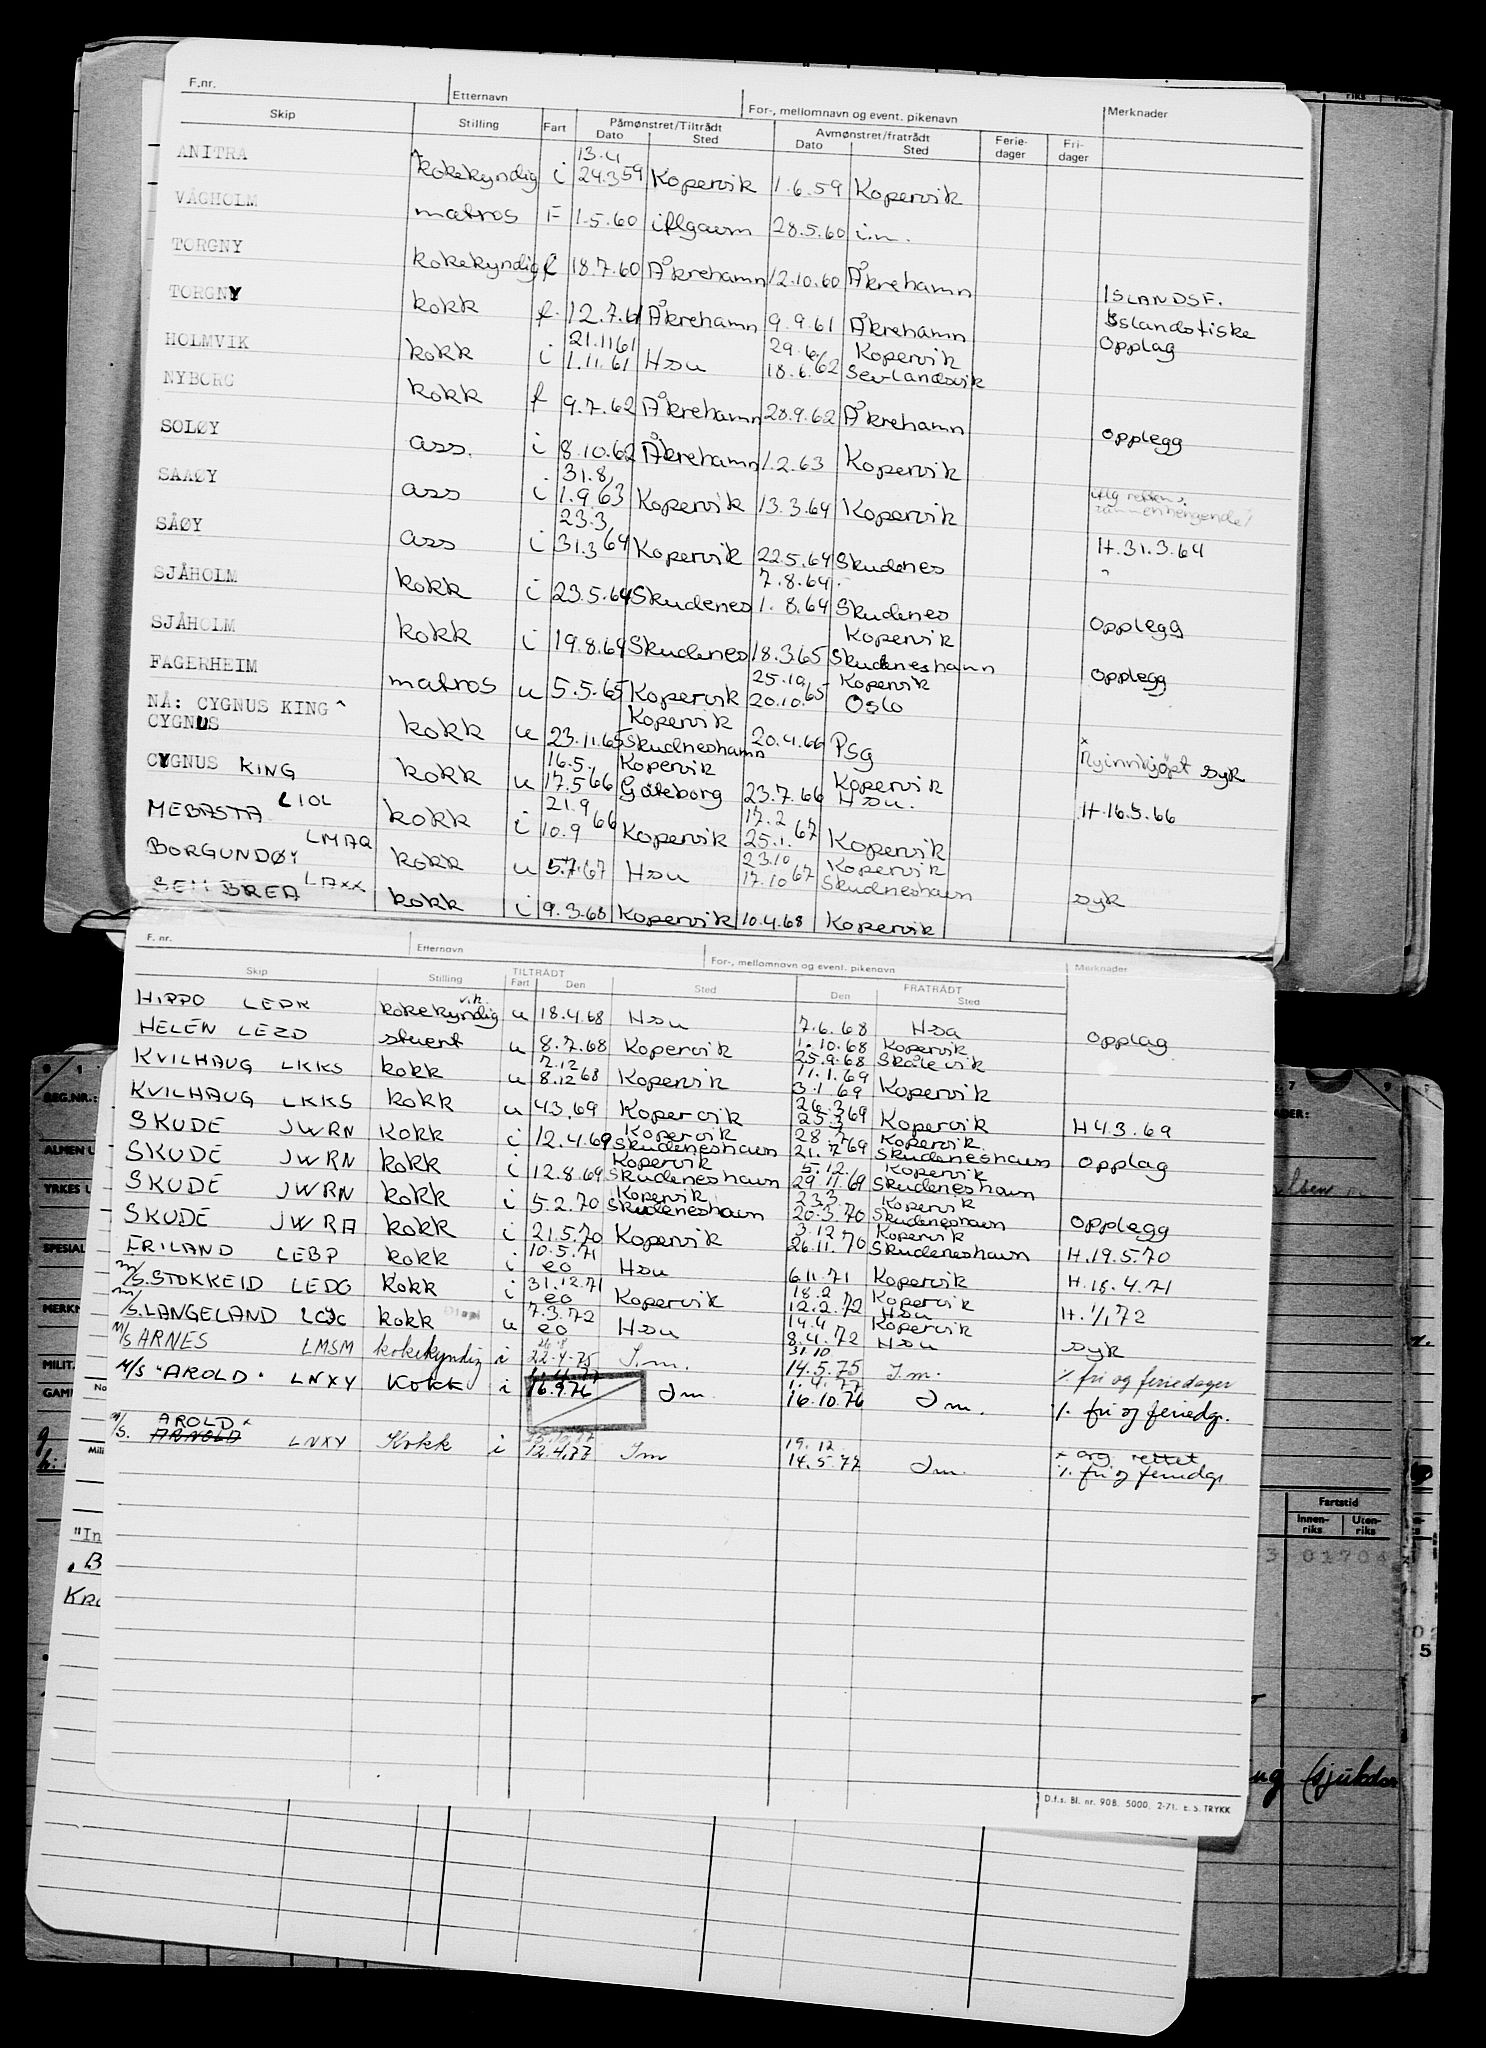 F.nr. Etternavn For-, mellomnavn og event. pikenavn Merknader
Skip Stilling Fart Påmønstret/Tiltrådt Dato Sted Avmønstret/fratrådt Dato Sted Ferie-dager Fri-dager
13.4
ANITRA kokekyndig i 24.3 59 Kopervik 1.6.59 Kopervik
VÅGHOLM matros F 1.5.60 iflgavm 28.5.60 i.m.
TORGNY kokekyndig f 18.7.60 Åkrehamn 12.10.60 Åkrehamn ISLANDSF.
TORGNY kokk f. 12.7.61 Åkrehamn 9.9.61 Åkrehamn Islandsfiske
21.11 61 29.6 Kopervik Opplag
HOLMVIK kokk i 1.11.61 Hsu 18.6.62 Sevlandsvik
NYBORG kokk f 9.7.62 Åkrehamn 28.9.62 Åkrehamn opplegg
SOLØY ass. i 8.10.62 Åkrehamn 1.2.63 Kopervik
31.8
SAAØY ass i 1.9 63 Kopervik 13.3.64 Kopervik
23.3
SÅØY ass i 31.3 64 Kopervik 22.5.64 Skudenes H.31.3.64
7.8.64
SJÅHOLM kokk i 23.5.64 Skudenes 1.8.64 Skudenes opplegg
Kopervik
SJÅHOLM kokk i 19.8.64 Skudenes 18.3.65 Skudeneshamn opplegg
25.10 Kopervik
FAGERHEIM matros u 5.5.65 Kopervik 20.10.65 Oslo
NÅ: CYGNUS KING Kopervik
CYGNUS kokk u 23.11.65 Skudneshamn 20.4.66 Psg syk
16.5. Kopervik Kopervik
CYGNUS KING kokk u 17.5 66 Göteborg 23.7.66 Hsu. H.16.5.66
21.9 17.2
MEBASTA LIOL kokk i 10.9 66 Kopervik 25.1. 67 Kopervik
23.10 Kopervik
BORGUNDØY LMAQ kokk u 5.7.67 Hsu 17.10 67 Skudneshavn syk
BREA LAXX kokk i 9.3.68 Kopervik 10.4.68 Kopervik
F. nr. Etternavn For-, mellomnavn og event. pikenavn Merknader
Skip Stilling TILTRÅDT Fart Den Sted FRATRÅDT Den Sted
HIPPO LEDR kokekyndig u 18.4.68 Hsu 7.6.68 Hsu opplag
1.10.68 Kopervik
HELÉN LEZD stuert u 8.7.68 Kopervik 25.9.68 Skålevik
7.12 11.1.69
KVILHAUG LKKS kokk u 8.12 68 Kopervik 3.1 69 Kopervik
26.3
KVILHAUG LKKS kokk u 4.3.69 Kopervik 25.3 69 Kopervik H4.3.69
Kopervik 28.7 Kopervik
SKUDE JWRN kokk i 12.4.69 Skudeneshavn 21.7 69 Skudeneshavn opplag
Kopervik 5.12. Kopervik
SKUDE JWRN kokk i 12.8.69 Skudeneshavn 29.11.69 Skudeneshavn
Kopervik 23.3 Kopervik
SKUDE JWRN kokk i 5.2.70 Skudeneshavn 20.3.70 Skudeneshavn opplegg
3.12 Kopervik
SKUDE JWRA kokk i 21.5.70 Kopervik 26.11.70 Skudeneshavn H.19.5.70
10.5.71
FRILAND LEBP kokk i eo Hsu 6.11.71 Kopervik H.18.4.71
31.12.71 18.2 Kopervik
M/S. STOKKEID LEDG kokk i eo Kopervik 12.2.72 Hsu H.1/1 72
7.3.72 14.4 Kopervik
M/S. LANGELAND kokk u eo Hsu 8.4.72 Hsu syk
31.10
M/S ARNES LMSM kokekyndig i 22.4.75 I.m. 14.5.75 I.m. % fri og feriedager
1.4.77
M/S "AROLD" LNXY Kokk i 16.9.76 Im 16.10.76 Im. % fri og feriedgr.
AROLD 19.12 x org. rettet
M/S. ARNOLD LNXY Kokk i 12.4.77 Im 14.5.77 Im. % fri og feriedgr
D.f.s. Bl. nr. 908. 5000. 2-71. E. S. TRYKK
REG.NR.:
YRKES
SPESIAL
MILIT.
"In
Fartstid
Innen-riks Uten-riks
3 01704
(sjukdom